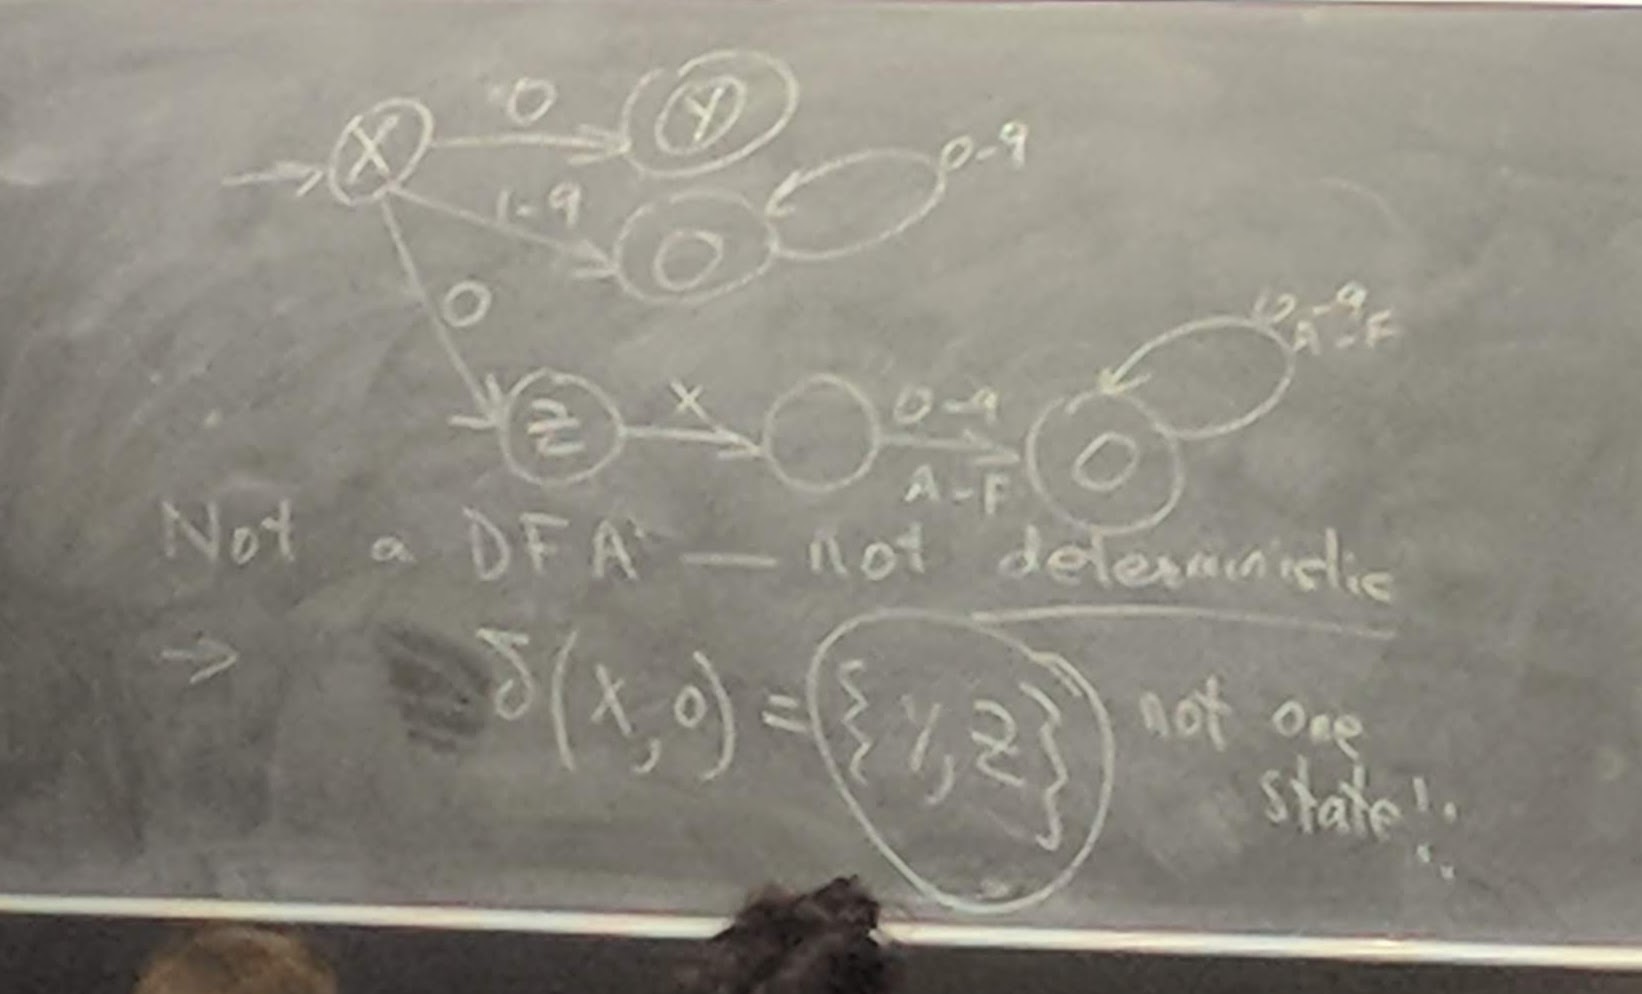 X 0 Y
1-9 0-9
0
Z x 0-9 0-9
A-F A-F
Not a DFA — not deterministic
→ δ(X,0) = {Y,Z} not one
state!!